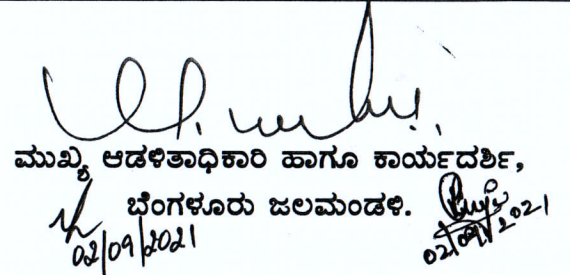 ಮುಖ್ಯ ಆಡಳಿತಾಧಿಕಾರಿ ಹಾಗೂ ಕಾರ್ಯದರ್ಶಿ,
ಬೆಂಗಳೂರು ಜಲಮಂಡಳಿ.
02/09/2021
02/09/2021